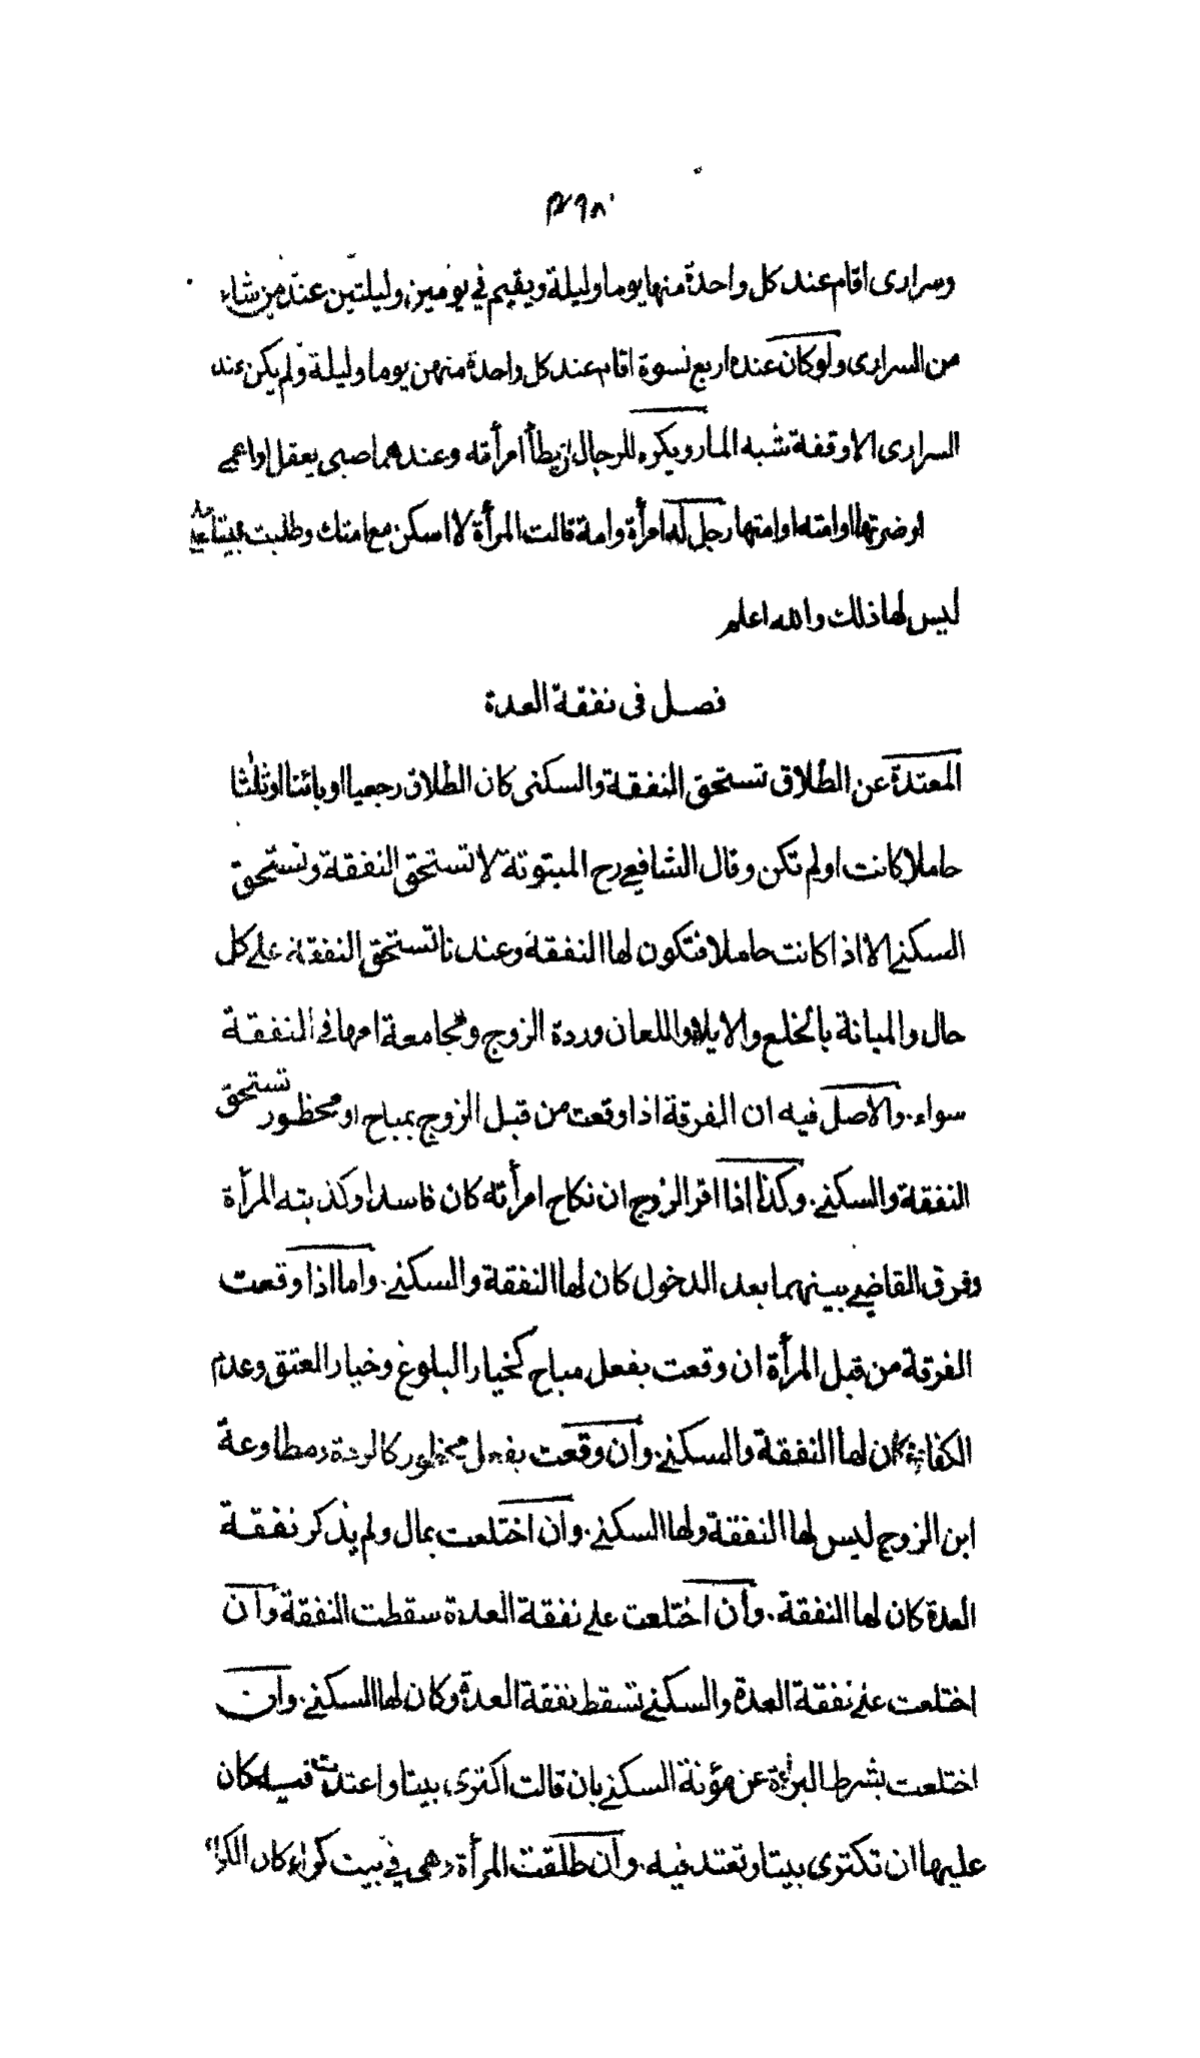 ٤٩٨
وسرارى اقام عند كل واحدة منها يوما وليلة ويقيم في يومين وليلتين عند من شاء
من السرارى ولو كان عنده اربع نسوة اقام عند كل واحدة منهن يوما وليلة ولم يكن عند
السرارى الا وقفة شبه المار ويكره للرجال ان يطأ امرأته وعندهما صبى يعقل او اعمى
او ضرتها او امته او امتها رجل له امرأة وامة قالت المرأة لا اسكن مع امتك وطلبت بيتا
ليس لها ذلك والله اعلم
فصل فى نفقة العدة
المعتدة عن الطلاق تستحق النفقة والسكنى كان الطلاق رجعيا او بائنا او ثلثا
حاملا كانت او لم تكن وقال الشافعي رح المبتوتة لا تستحق النفقة وتستحق
السكنى الا اذا كانت حاملا فتكون لها النفقة وعندنا تستحق النفقة على كل
حال والمبانة بالخلع والايلاء واللعان وردة الزوج ومجامعة امها في النفقة
سواء. والاصل فيه ان الفرقة اذا وقعت من قبل الزوج بمباح او محظور تستحق
النفقة والسكنى. وكذا اذا اقر الزوج ان نكاح امرأته كان فاسدا وكذبته المرأة
وفرق القاضي بينهما بعد الدخول كان لها النفقة والسكنى. واما اذا وقعت
الفرقة من قبل المرأة ان وقعت بفعل مباح كخيار البلوغ وخيار العتق وعدم
الكفاءة كان لها النفقة والسكنى. وان وقعت بفعل محظور كالردة ومطاوعة
ابن الزوج ليس لها النفقة ولها السكنى. وان اختلعت بمال ولم يذكر نفقة
العدة كان لها النفقة. وان اختلعت على نفقة العدة سقطت النفقة وان
اختلعت على نفقة العدة والسكنى تسقط نفقة العدة وكان لها السكنى. وان
اختلعت بشرط البراءة عن مؤنة السكنى بان قالت اكترى بيتا واعتدت فيه كان
عليها ان تكترى بيتا وتعتد فيه. وان طلقت المرأة وهى في بيت كراء كان الكراء